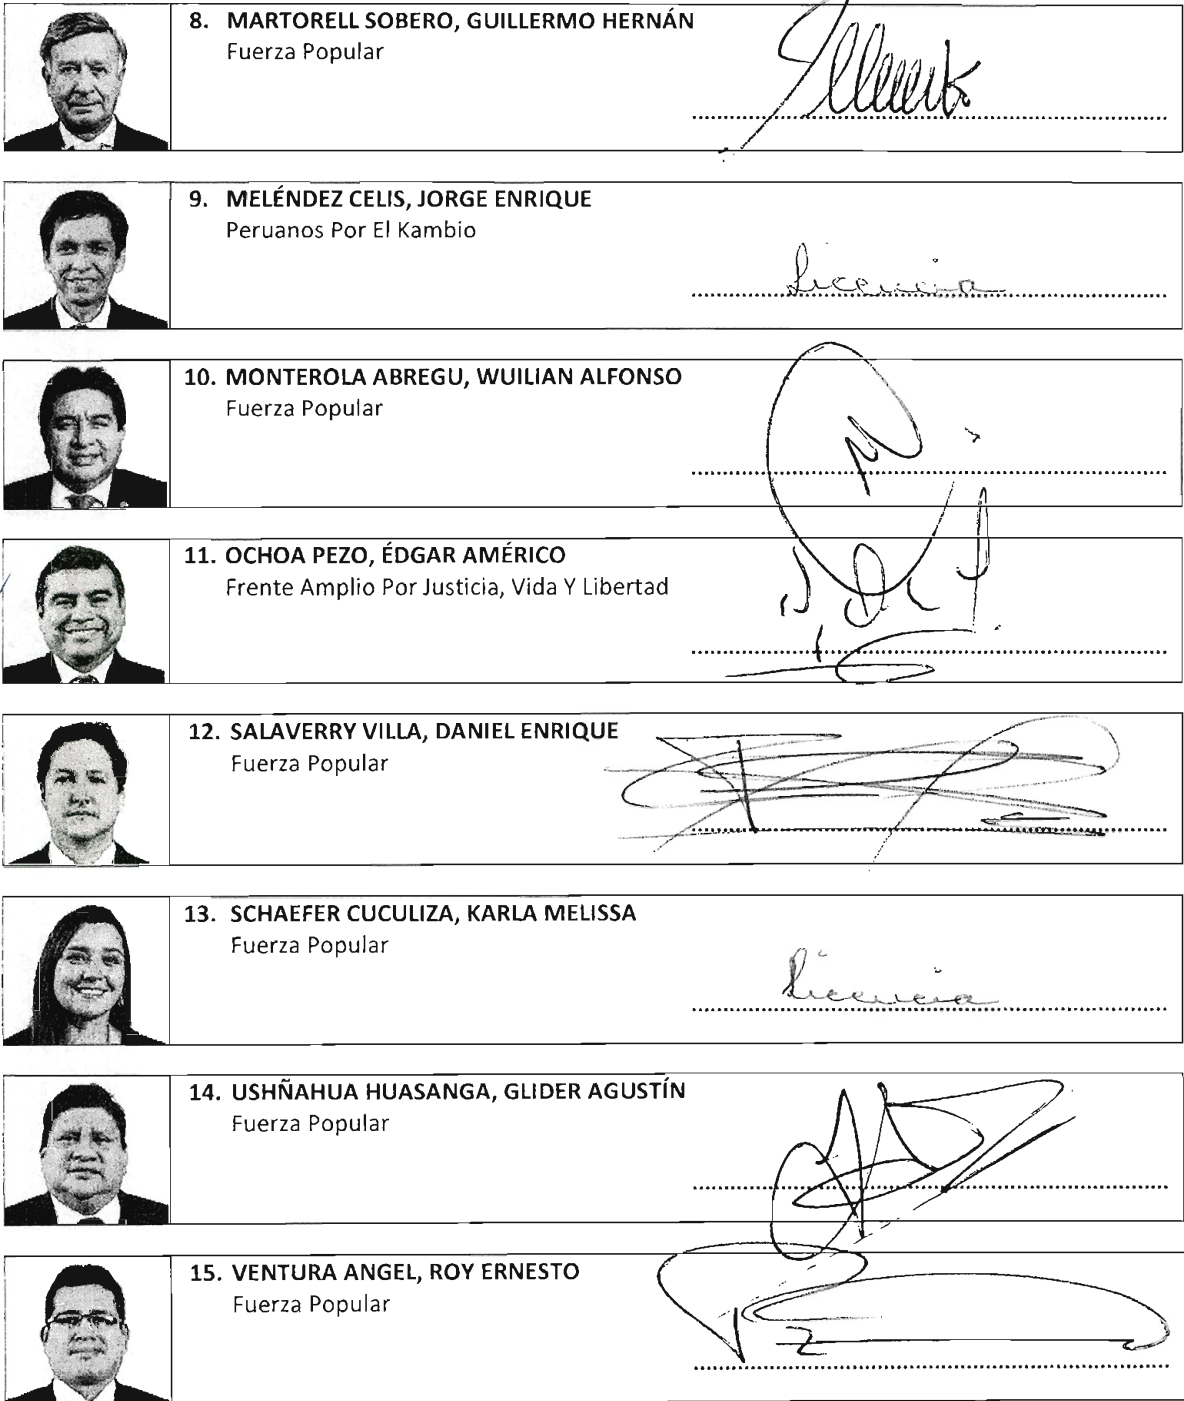 8. MARTORELL SOBERO, GUILLERMO HERNÁN
Fuerza Popular
9. MELÉNDEZ CELIS, JORGE ENRIQUE
Peruanos Por El Kambio
Licencia
10. MONTEROLA ABREGU, WUILIAN ALFONSO
Fuerza Popular
11. OCHOA PEZO, ÉDGAR AMÉRICO
Frente Amplio Por Justicia, Vida Y Libertad
12. SALAVERRY VILLA, DANIEL ENRIQUE
Fuerza Popular
13. SCHAEFER CUCULIZA, KARLA MELISSA
Fuerza Popular
Licencia
14. USHÑAHUA HUASANGA, GLIDER AGUSTÍN
Fuerza Popular
15. VENTURA ANGEL, ROY ERNESTO
Fuerza Popular